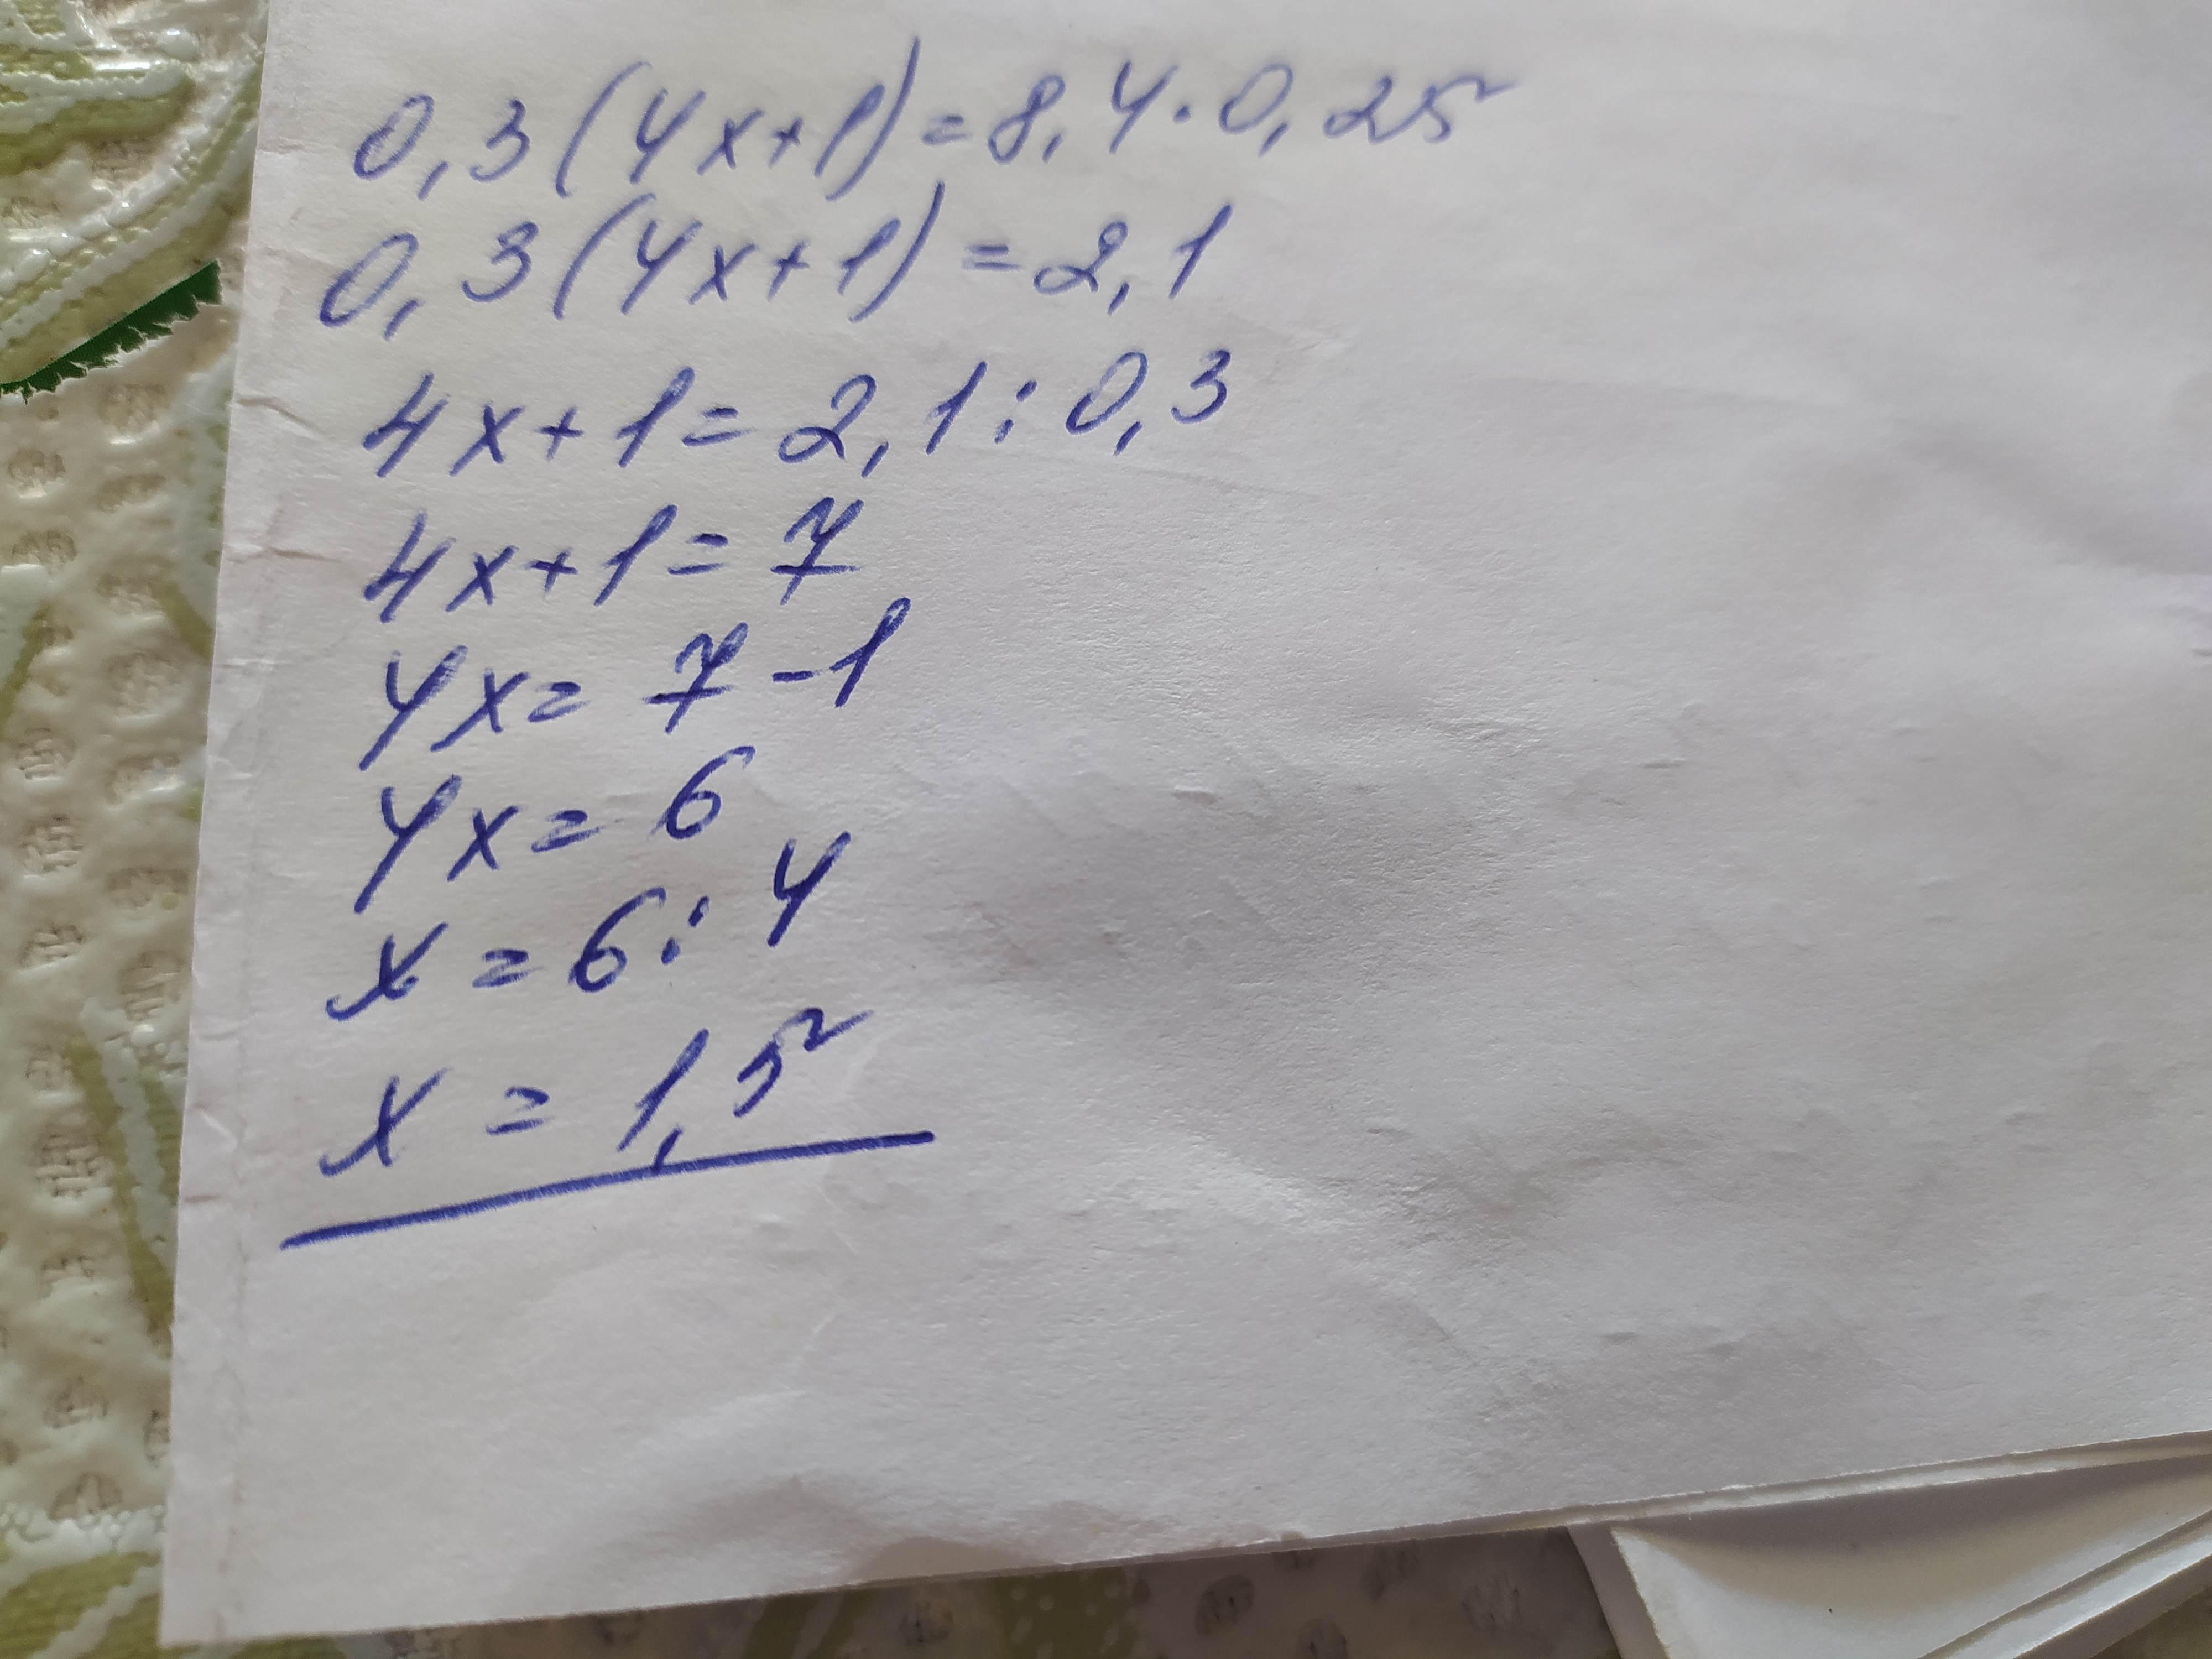 0,3(4x+1)=8,4·0,25
0,3(4x+1)=2,1
4x+1=2,1:0,3
4x+1=7
4x=7-1
4x=6
x=6:4
x=1,5